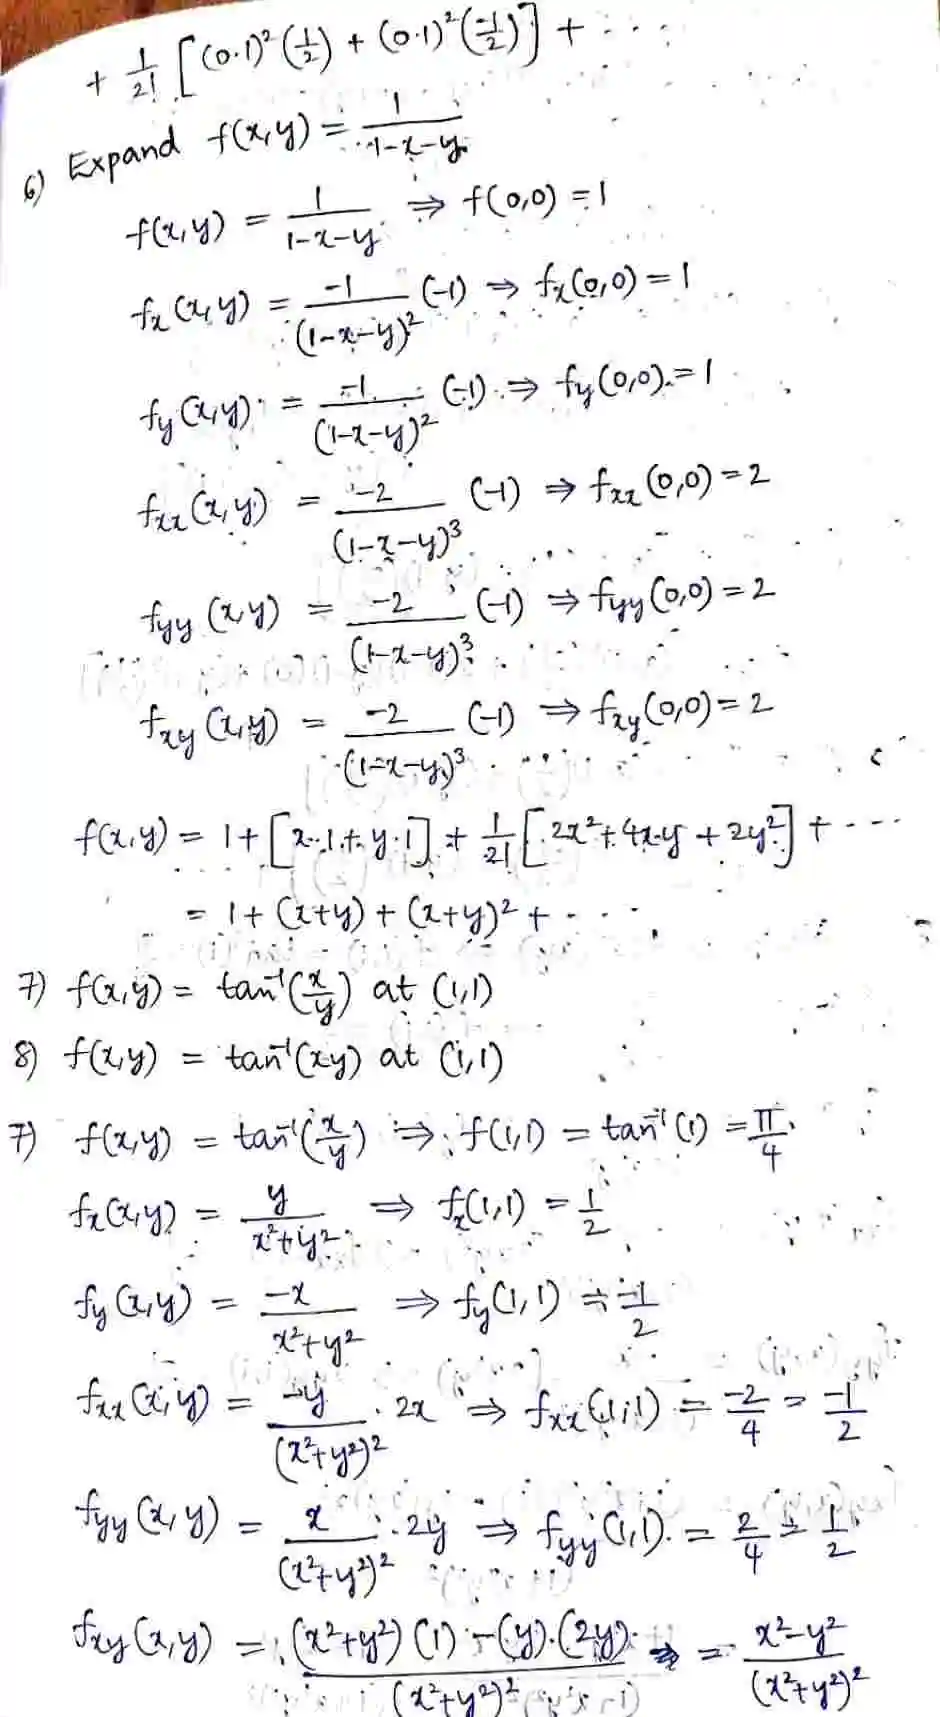 + 1/2! [(0.1)²(1/2) + (0.1)²(-1/2)] + ...
6) Expand f(x,y) = 1/(1-x-y)
f(x,y) = 1/(1-x-y) ⇒ f(0,0) = 1
fx(x,y) = -1/(1-x-y)² (-1) ⇒ fx(0,0) = 1
fy(x,y) = -1/(1-x-y)² (-1) ⇒ fy(0,0) = 1
fxx(x,y) = -2/(1-x-y)³ (-1) ⇒ fxx(0,0) = 2
fyy(x,y) = -2/(1-x-y)³ (-1) ⇒ fyy(0,0) = 2
fxy(x,y) = -2/(1-x-y)³ (-1) ⇒ fxy(0,0) = 2
f(x,y) = 1 + [x.1 + y.1] + 1/2! [2x² + 4xy + 2y²] + ...
= 1 + (x+y) + (x+y)² + ...
7) f(x,y) = tan⁻¹(x/y) at (1,1)
8) f(x,y) = tan⁻¹(xy) at (1,1)
7) f(x,y) = tan⁻¹(x/y) ⇒ f(1,1) = tan⁻¹(1) = π/4
fx(x,y) = y/(x²+y²) ⇒ fx(1,1) = 1/2
fy(x,y) = -x/(x²+y²) ⇒ fy(1,1) = -1/2
fxx(x,y) = -y/(x²+y²)² . 2x ⇒ fxx(1,1) = -2/4 = -1/2
fyy(x,y) = x/(x²+y²)² . 2y ⇒ fyy(1,1) = 2/4 = 1/2
fxy(x,y) = (x²+y²)(1) - (y).(2y)/(x²+y²)² = x²-y²/(x²+y²)²